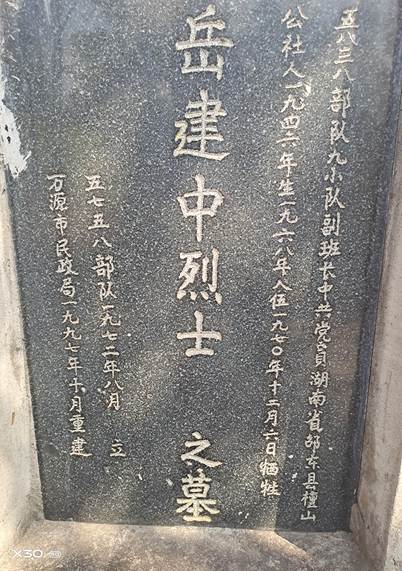 五八三八部队九小队副班长中共党员湖南省邵东县檀山
公社人一九四六年生一九六八年入伍一九七〇年十二月六日牺牲
岳建中烈士 之墓
五七五八部队一九七二年八月 立
万源市民政局一九九七年十月重建
X30